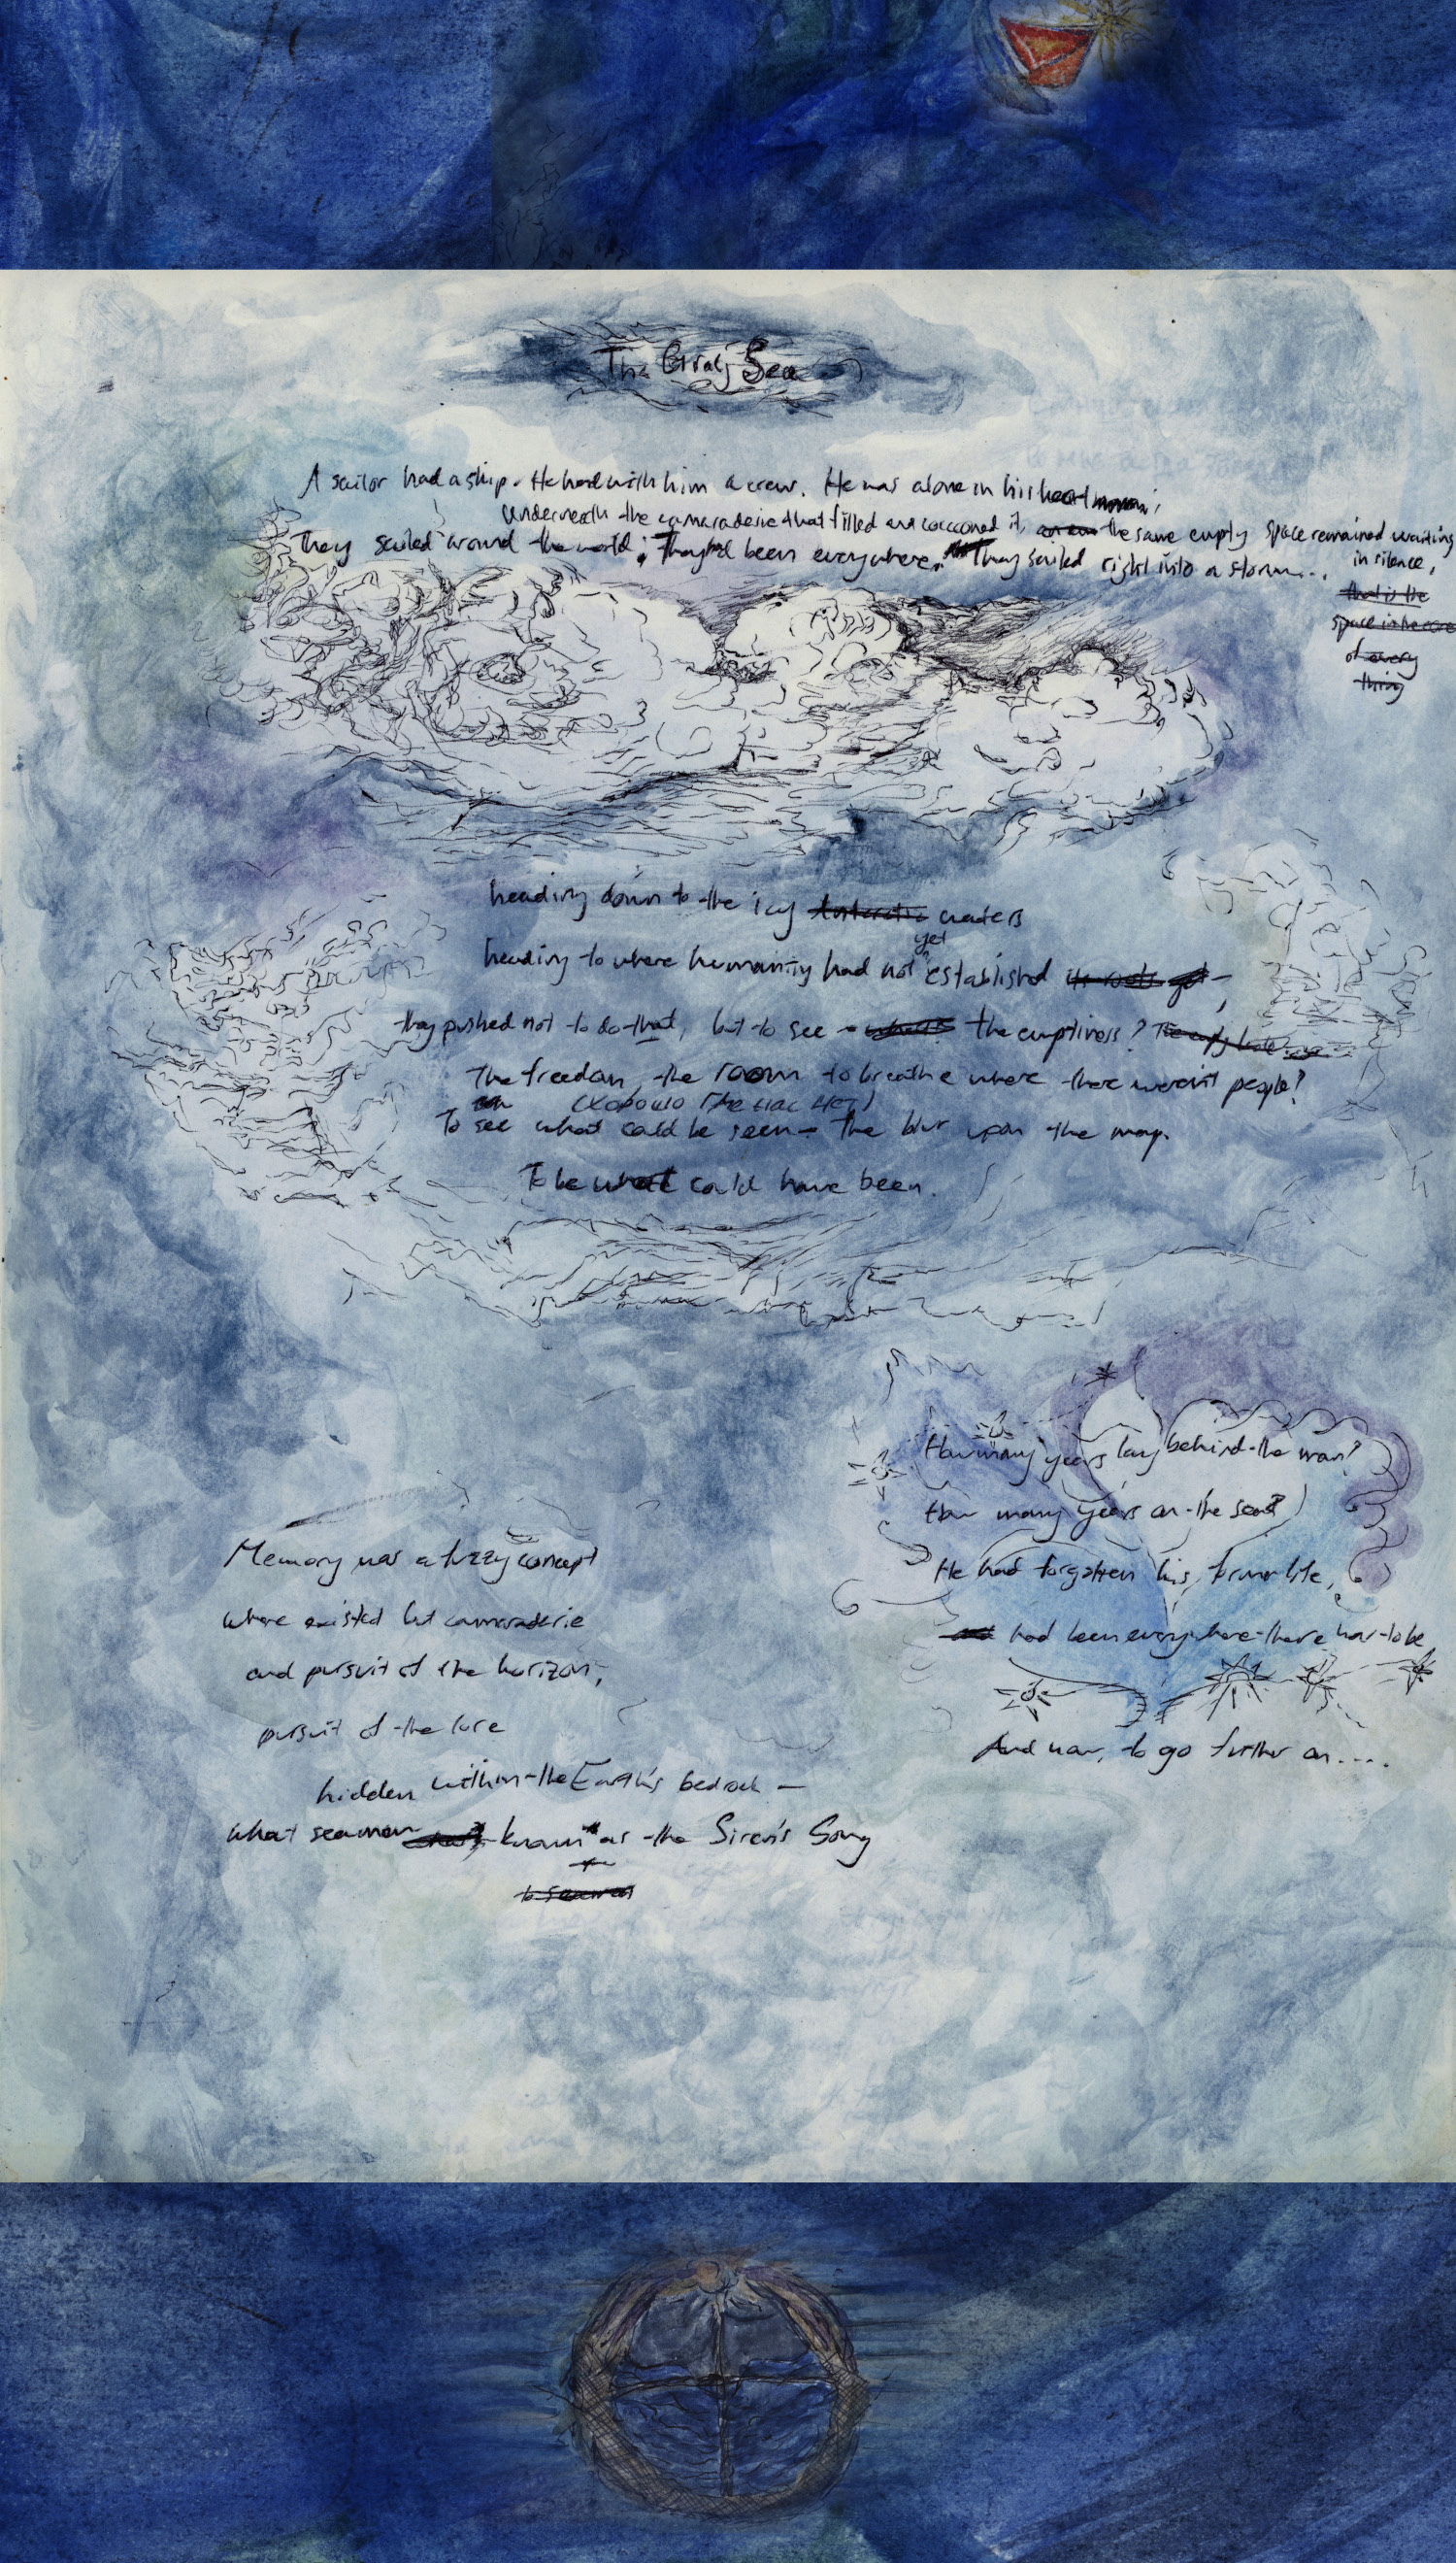 The Gray Sea
A sailor had a ship. He had with him a crew. He was alone in his heart
underneath the camaraderie that filled and cocooned it, the same empty space remained waiting
in silence,
that is the
space in the core
of every
thing
They sailed around the world; They'd been everywhere. They sailed right into a storm...
heading down to the icy Antarctic waters
yet
heading to where humanity had not established its roots yet -
they pushed not to do that, but to see - the emptiness? The empty
The freedom, the room to breathe where there weren't people?
(Хорошо где нас нет)
To see what could be seen - the blur upon the map.
To be what could have been.
How many years lay behind the man?
How many years on the sea?
He had forgotten his former life,
had been everywhere there was to be
And now, to go further on....
Memory was a fuzzy concept
where existed but camaraderie
and pursuit of the horizon,
pursuit of the lore
hidden within the Earth's bedrock -
what seamen known as the Siren's Song
to seamen